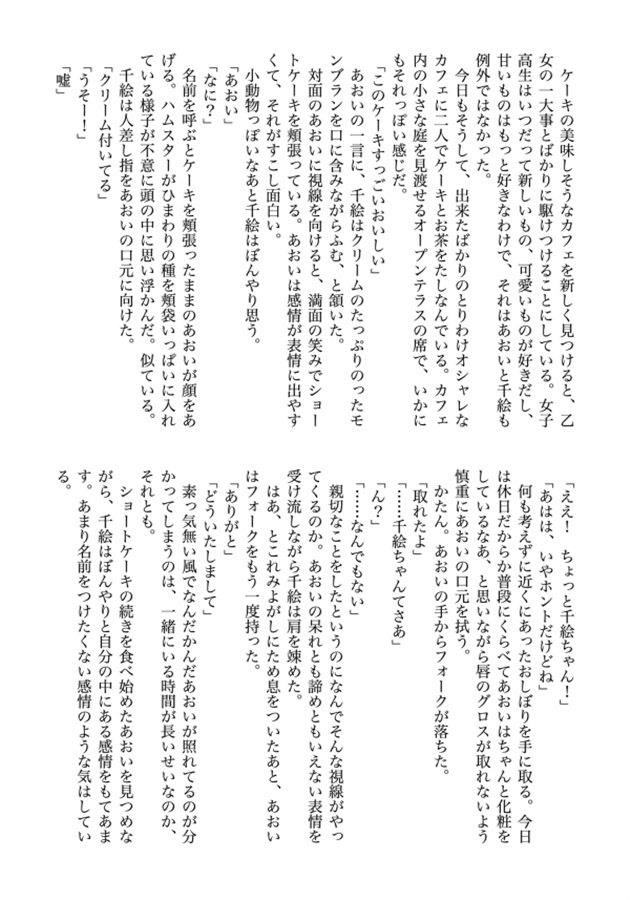 ケーキの美味しそうなカフェを新しく見つけると、乙
女の一大事とばかりに駆けつけることにしている。女子
高生はいつだって新しいもの、可愛いものが好きだし、
甘いものはもっと好きなわけで、それはあおいと千絵も
例外ではなかった。
　今日もそうして、出来たばかりのとりわけオシャレな
カフェに二人でケーキとお茶をたしなんでいる。カフェ
内の小さな庭を見渡せるオープンテラスの席で、いかに
もそれっぽい感じだ。
「このケーキすっごいおいしい」
　あおいの一言に、千絵はクリームのたっぷりのったモ
ンブランを口に含みながらふむ、と頷いた。
　対面のあおいに視線を向けると、満面の笑みでショー
トケーキを頬張っている。あおいは感情が表情に出やす
くて、それがすこし面白い。
　小動物っぽいなあと千絵はぼんやり思う。
「あおい」
「なに？」
　名前を呼ぶとケーキを頬張ったままのあおいが顔をあ
げる。ハムスターがひまわりの種を頬袋いっぱいに入れ
ている様子が不意に頭の中に思い浮かんだ。似ている。
　千絵は人差し指をあおいの口元に向けた。
「クリーム付いてる」
「うそー！」
「嘘」
「ええ！　ちょっと千絵ちゃん！」
「あはは、いやホントだけどね」
　何も考えずに近くにあったおしぼりを手に取る。今日
は休日だからか普段にくらべてあおいはちゃんと化粧を
しているなあ、と思いながら唇のグロスが取れないよう
慎重にあおいの口元を拭う。
　かたん。あおいの手からフォークが落ちた。
「取れたよ」
「……千絵ちゃんてさあ」
「ん？」
「……なんでもない」
　親切なことをしたというのになんでそんな視線がやっ
てくるのか。あおいの呆れとも諦めともいえない表情を
受け流しながら千絵は肩を竦めた。
　はあ、とこれみよがしにため息をついたあと、あおい
はフォークをもう一度持った。
「ありがと」
「どういたしまして」
　素っ気無い風でなんだかんだあおいが照れてるのが分
かってしまうのは、一緒にいる時間が長いせいなのか、
それとも。
　ショートケーキの続きを食べ始めたあおいを見つめな
がら、千絵はぼんやりと自分の中にある感情をもてあま
す。あまり名前をつけたくない感情のような気はしてい
る。